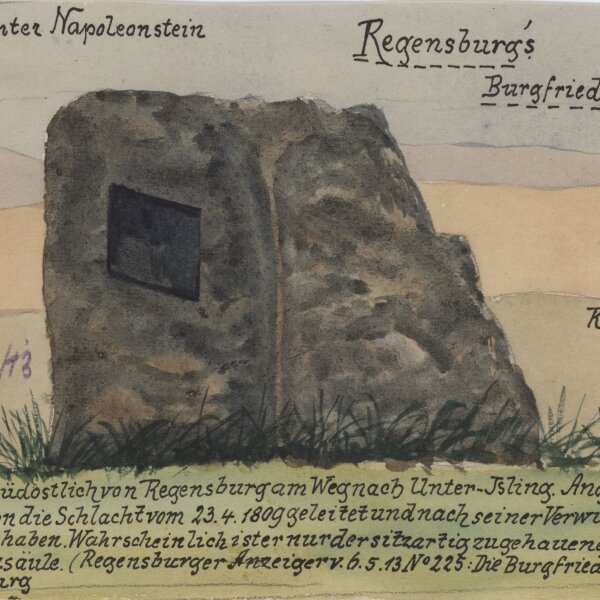 nter Napoleonstein
Regensburg's
Burgfried
K
/43
südöstlich von Regensburg am Weg nach Unter-Isling. Ang
on die Schlacht vom 23.4.1809 geleitet und nach seiner Verwu
haben. Wahrscheinlich ist er nur der sitzartig zugehauene
säule. (Regensburger Anzeiger v. 6.5.13 No 225: Die Burgfried
urg